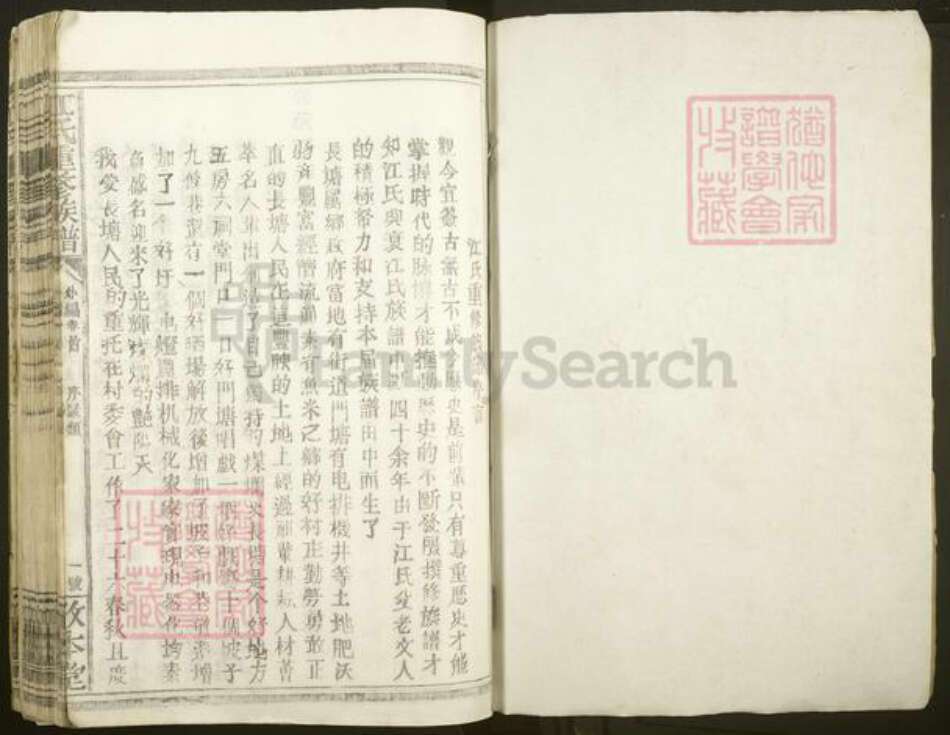 猶他家
譜學會
收藏
江氏重修族譜序言
觀今宜鑒古無古不成今歷史是前輩只有尊重歷史才能
掌握時代的脉搏才能推動歷史的不斷發展撰修族譜才
知江氏興衰江氏族譜中斷四十余年由于江氏 老文人
的積極努力和支持本届族譜由中而生了
長塘属鄉政府富地有街道門塘有电排機井等土地肥沃
物 豐富經濟流通素有魚米之鄉的好村庄勤勞勇敢正
直的長塘人民在這豐映的土地上經過前輩耕耘人材菁
萃名人輩出 了自己獨特的 長塘是个好地方
五房六 堂門口一口好門塘唱戲一個好戲 十個坡子
九 有一個好晒場解放後增加了
加了一个好圩 电燈 排机械化家家 电器化 素
負盛名迎來了光輝燦爛的艷陽天
我受長塘人民的重托在村委會工作了二十六春秋且度
江氏重修族譜
外編卷首
序 類
一號
敦本堂
FamilySearch